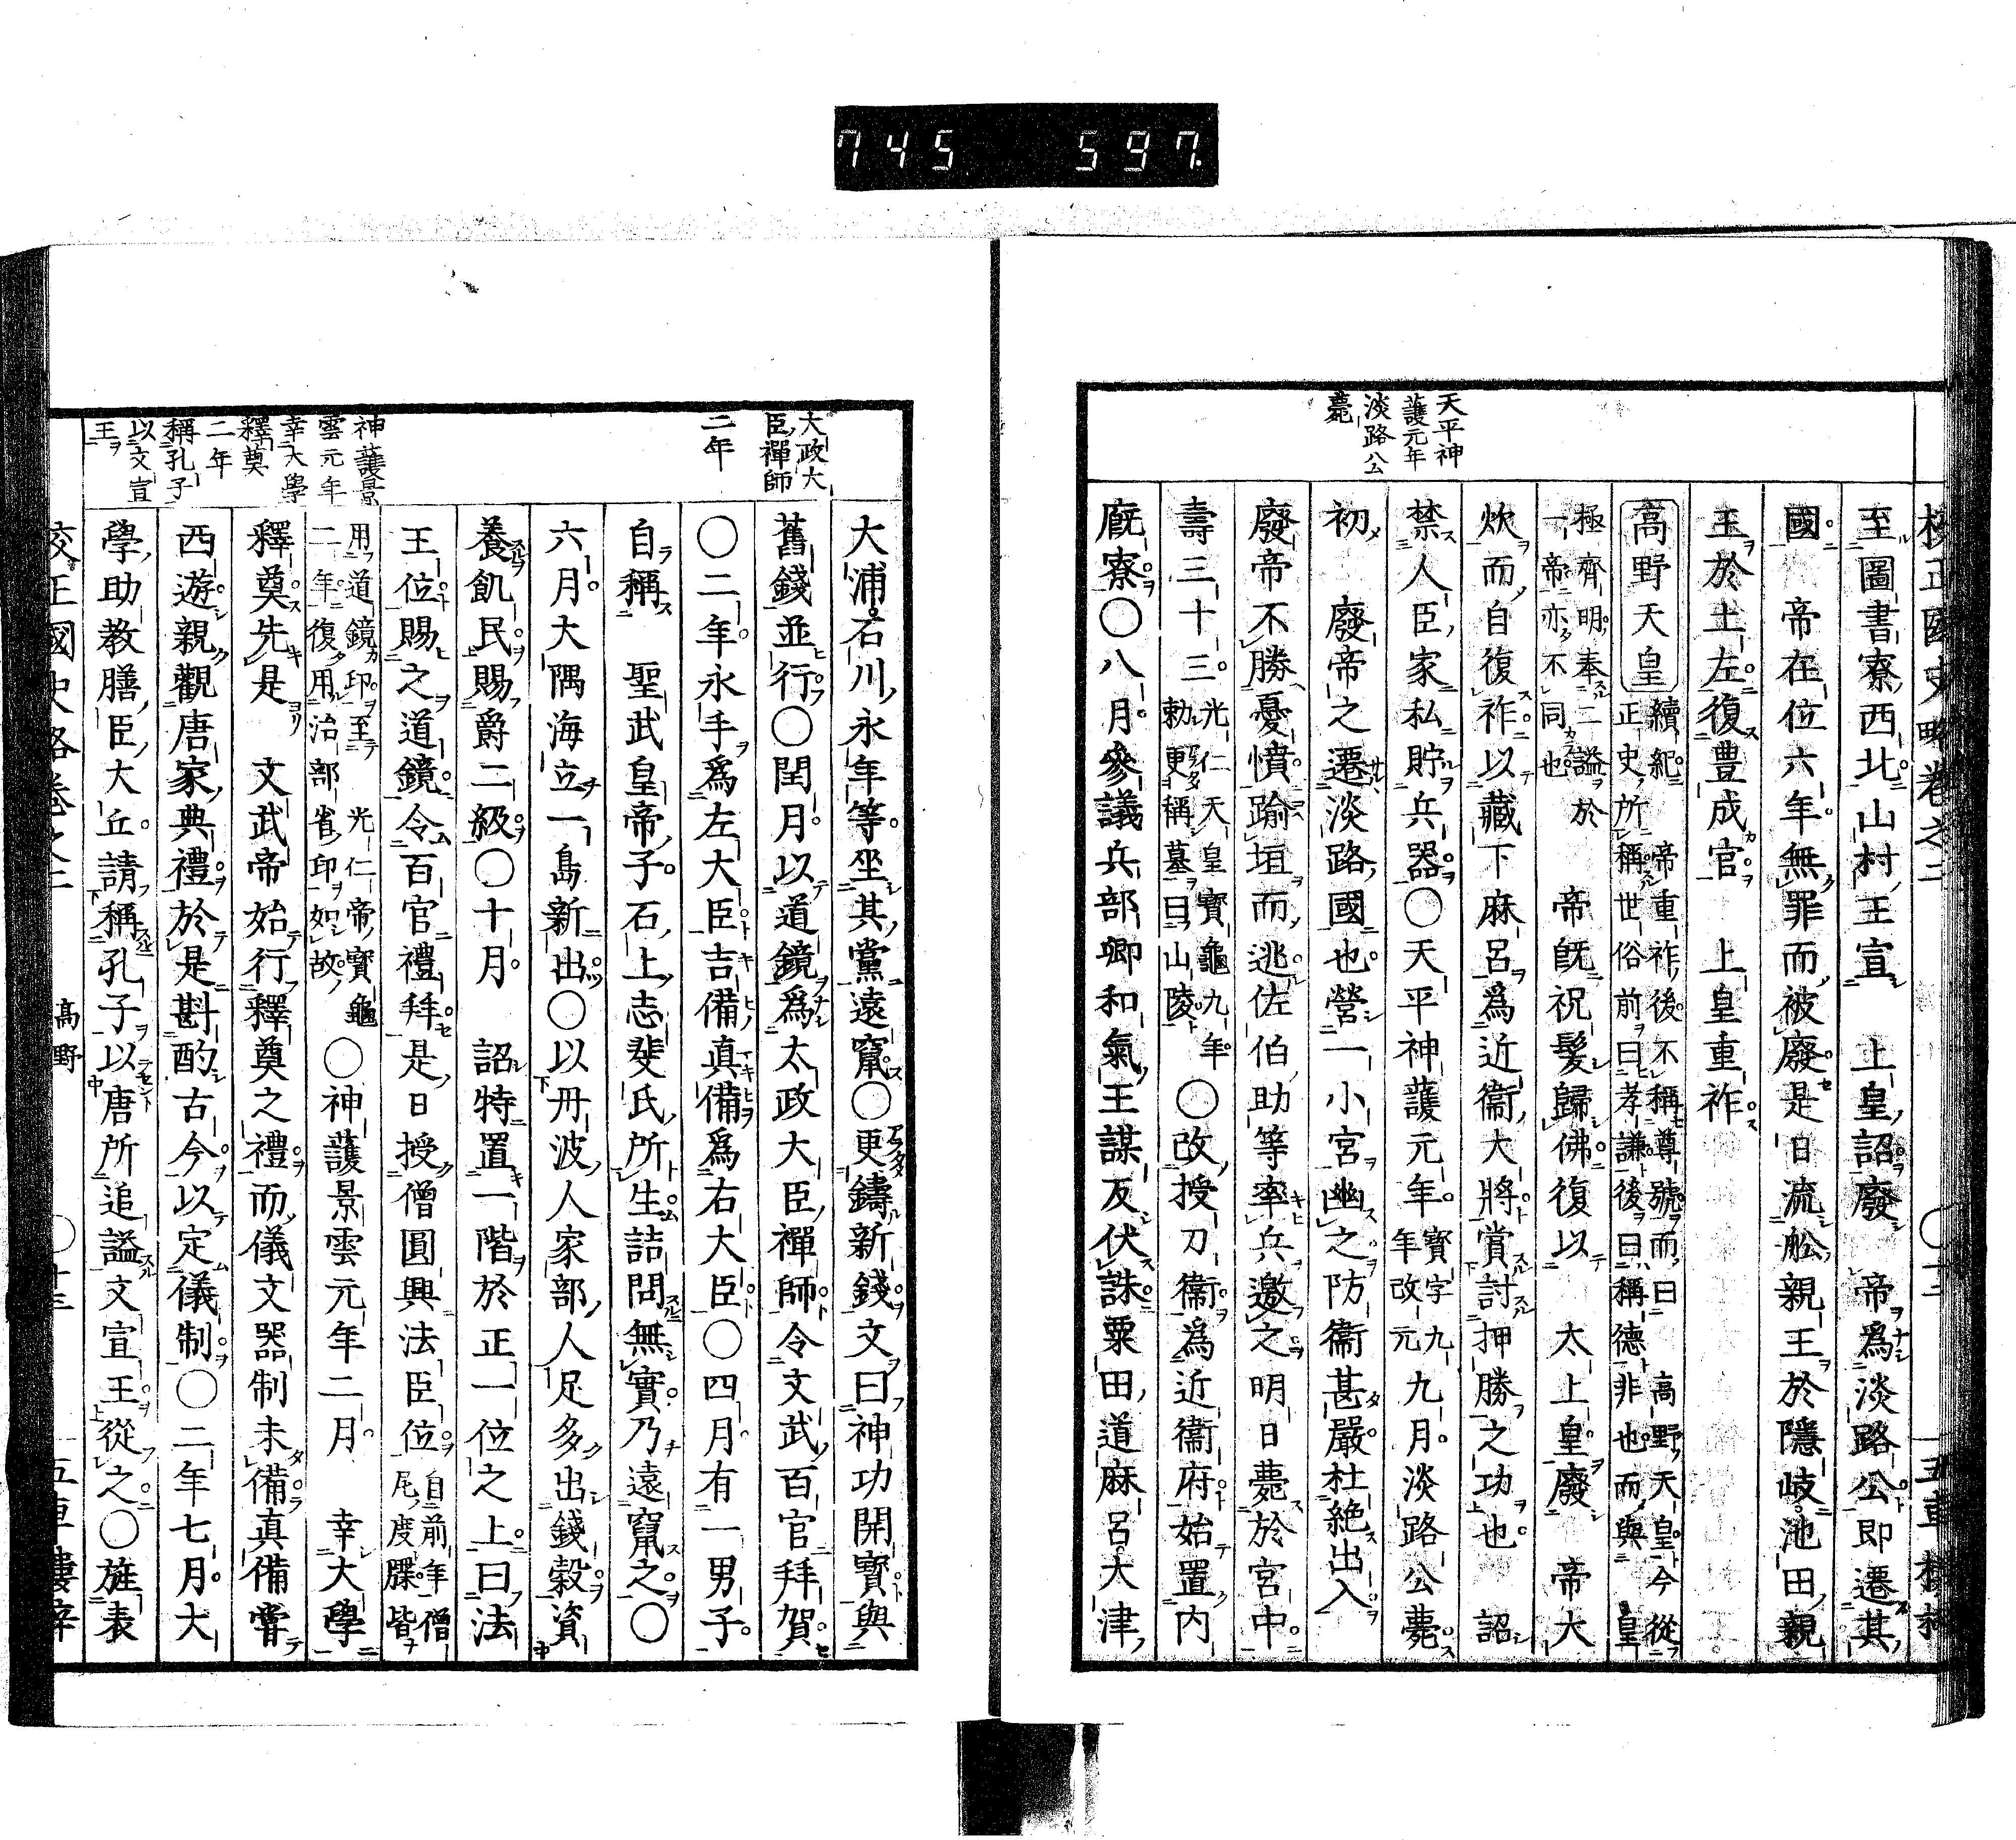 745 597.
校正國史略卷之二
至圖書寮西北山村王宣 上皇詔廢 帝爲淡路公即遷其
國 帝在位六年無罪而被廢是日流舩親王於隱岐池田親
王於土左復豊成官 上皇重祚
高野天皇 續紀 帝重祚後不稱尊號而曰 高野天皇今從
正史所稱世俗前曰孝謙後曰稱德非也而與 皇
極齊明奉二諡於
一帝亦不同也 帝旣祝髮歸佛復以 太上皇廢 帝大
炊而自復祚以藏下麻呂爲近衞大將賞討押勝之功也 詔
禁人臣家私貯兵器〇天平神護元年 寶字九
年改元 九月淡路公薨
初 廢帝之遷淡路國也營一小宮幽之防衞甚嚴杜絶出入
廢帝不勝憂憤踰垣而逃佐伯助等率兵邀之明日薨於宮中
壽三十三 光仁天皇寶龜九年
勅更稱墓曰山陵 〇改授刀衞爲近衞府始置內
廐寮〇八月參議兵部卿和氣王謀反伏誅粟田道麻呂大津
天平神
護元年
淡路公
薨
大浦石川永年等坐其黨遠竄〇更鑄新錢文曰神功開寶與
舊錢並行〇閏月以道鏡爲太政大臣禪師令文武百官拜賀
〇二年永手爲左大臣吉備真備爲右大臣〇四月有一男子
自稱 聖武皇帝子石上志斐氏所生詰問無實乃遠竄之〇
六月大隅海立一島新出〇以丹波人家部人足多出錢穀資
養飢民賜爵二級〇十月 詔特置一階於正一位之上曰法
王位賜之道鏡令百官禮拜是日授僧圓興法臣位 自前年僧
尼度牒皆
用道鏡印至 光仁帝寶龜
二年復用治部省印如故 〇神護景雲元年二月 幸大學
釋奠先是 文武帝始行釋奠之禮而儀文器制未備真備嘗
西遊親觀唐家典禮於是斟酌古今以定儀制〇二年七月大
學助教膳臣大丘請稱孔子以唐所追謚文宣王從之〇旌表
大政大
臣禪師
二年
神護景
雲元年
幸大學
釋奠
二年
稱孔子
以文宣
王
校正國史略卷之二 高野 〇十三 五車樓梓